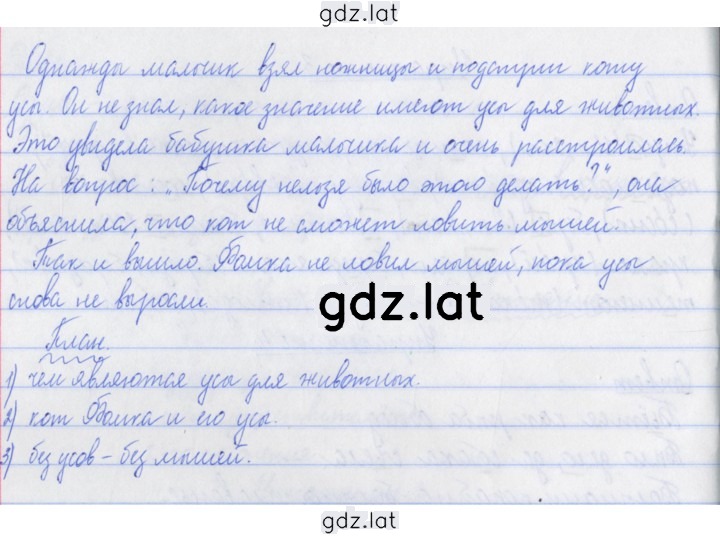 gdz.lat
Однажды мальчик взял ножницы и подстриг коту
усы. Он не знал, какое значение имеют усы для животных.
Это увидела бабушка мальчика и очень расстроилась.
На вопрос: „Почему нельзя было этого делать?“, она
объяснила, что кот не сможет ловить мышей.
Так и вышло. Фомка не ловил мышей, пока усы
снова не выросли.
gdz.lat
План.
1) чем являются усы для животных.
2) кот Фомка и его усы.
3) без усов – без мышей.
gdz.lat